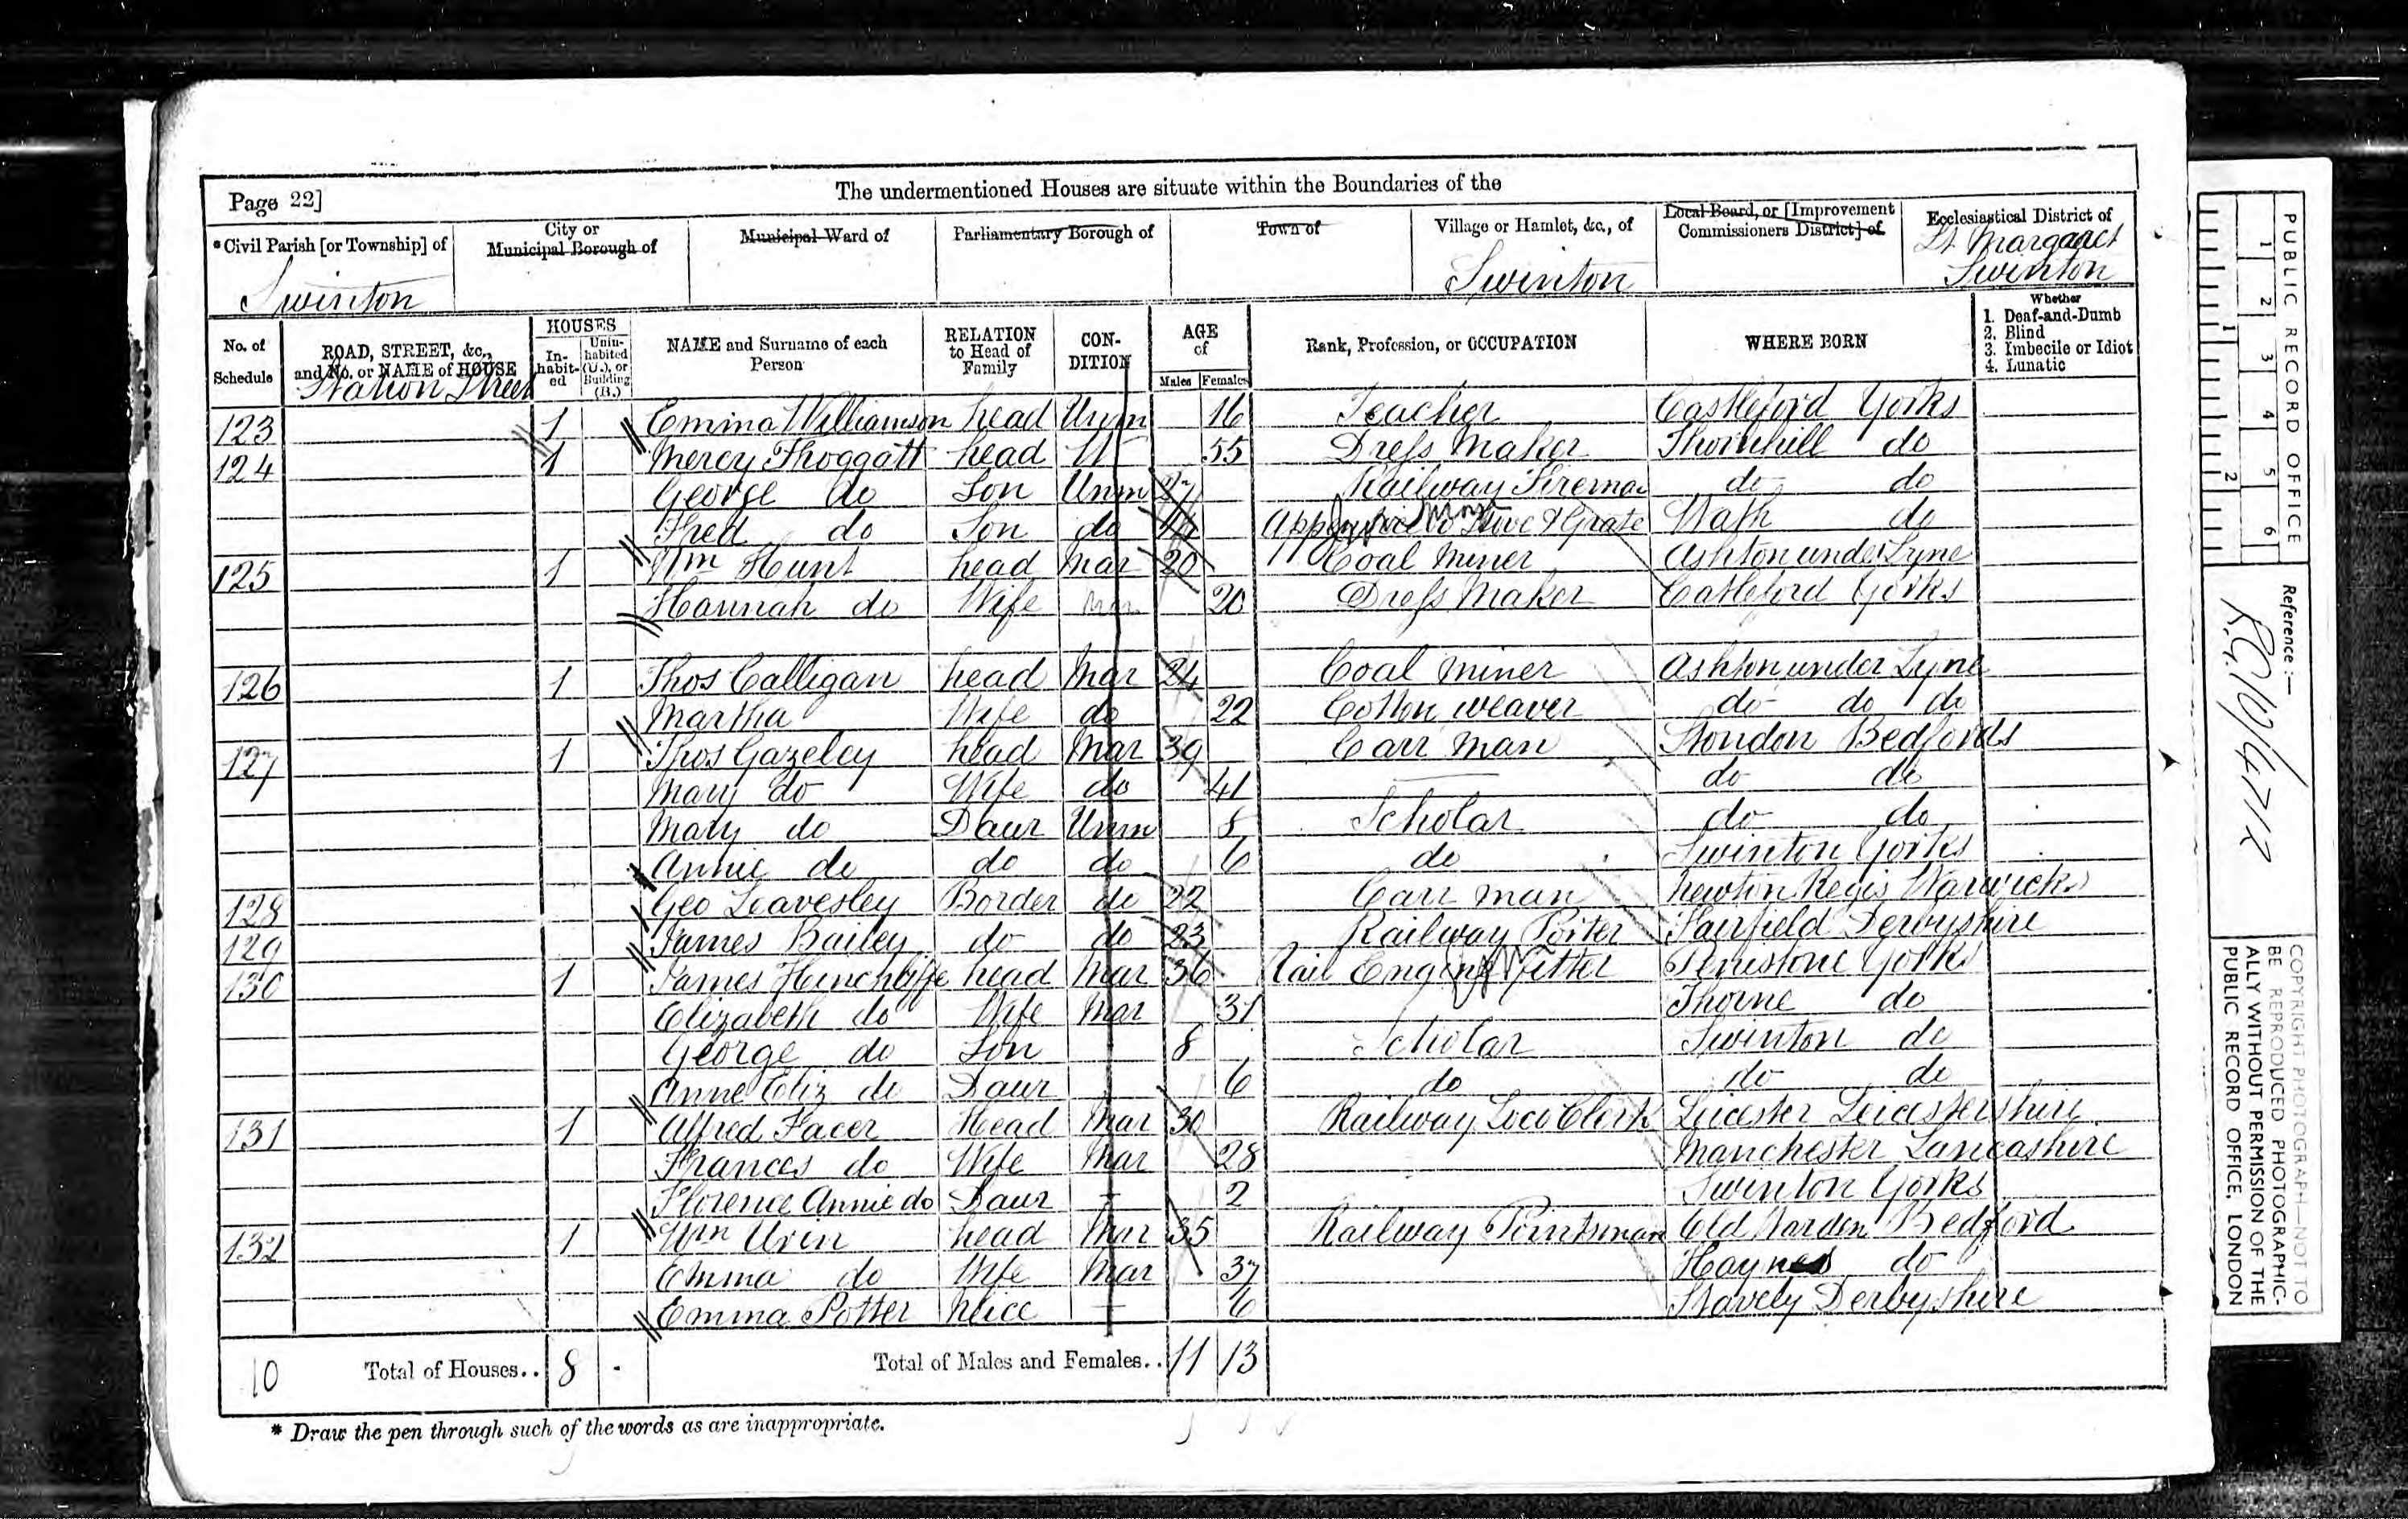 Page 22]
The undermentioned Houses are situate within the Boundaries of the
*Civil Parish [or Township] of
Swinton
City or
Municipal Borough of
Municipal Ward of
Parliamentary Borough of
Town of
Village or Hamlet, &c., of
Swinton
Local Board, or [Improvement
Commissioners District] of
Ecclesiastical District of
St Margaret
Swinton
No. of
Schedule
ROAD, STREET, &c.,
and No. or NAME of HOUSE
Station Street
HOUSES
In-
habit-
ed
Unin-
habited
(U.), or
Building
(B.)
NAME and Surname of each
Person
RELATION
to Head of
Family
CON-
DITION
AGE
of
Males Females
Rank, Profession, or OCCUPATION
WHERE BORN
Whether
1. Deaf-and-Dumb
2. Blind
3. Imbecile or Idiot
4. Lunatic
123 1 Emma Williamson head Unm 16 Teacher Castleford Yorks
124 1 Mercy Thoggatt head W 55 Dress Maker Thornhill do
George do Son Unm 27 Railway Fireman do do
Fred do Son do Stove & Grate Wath do
125 1 Wm Hunt head Mar 20 Coal Miner Ashton under Lyne
Hannah do Wife 20 Dress Maker Castleford Yorks
126 1 Thos Calligan head Mar 24 Coal Miner Ashton under Lyne
Martha Wife do 22 Cotton weaver do do do
127 1 Thos Gazeley head Mar 39 Carr man Stondon Bedfords
Mary do Wife do 41 do do
Mary do Daur Unm 8 Scholar do do
Annie do do do 6 do Swinton Yorks
128 Geo Leavesley Border do 22 Carr man Newton Regis Warwicks
129 James Bailey do do 23 Railway Porter Fairfield Derbyshire
130 1 James Hinchliffe head Mar 36 Rail Engine Fitter Penistone Yorks
Elizabeth do Wife Mar 31 Thorne do
George do Son 8 Scholar Swinton do
Anne Eliz do Daur 6 do do do
131 1 Alfred Facer Head Mar 30 Railway Loco Clerk Leicester Leicestershire
Frances do Wife Mar 28 Manchester Lancashire
Florence Annie do Daur - 2 Swinton Yorks
132 1 Wm Urin head Mar 35 Railway Pointsman Old Warden Bedford
Emma do Wife Mar 37 Haynes do
Emma Potter Neice - 6 Stavely Derbyshire
10 Total of Houses.. 8 - Total of Males and Females.. 11 13
* Draw the pen through such of the words as are inappropriate.
PUBLIC RECORD OFFICE
1 2 3 4 5 6
1 2
Reference :-
COPYRIGHT PHOTOGRAPH—NOT TO
BE REPRODUCED PHOTOGRAPHIC-
ALLY WITHOUT PERMISSION OF THE
PUBLIC RECORD OFFICE, LONDON